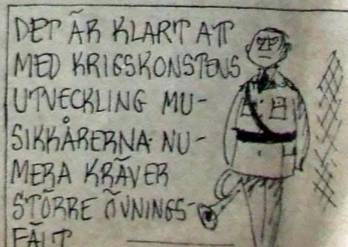 DET ÄR KLART ATT
MED KRIGSKONSTENS
UTVECKLING MU-
SIKKÅRERNA NU-
MERA KRÄVER
STÖRRE ÖVNINGS-
FÄLT